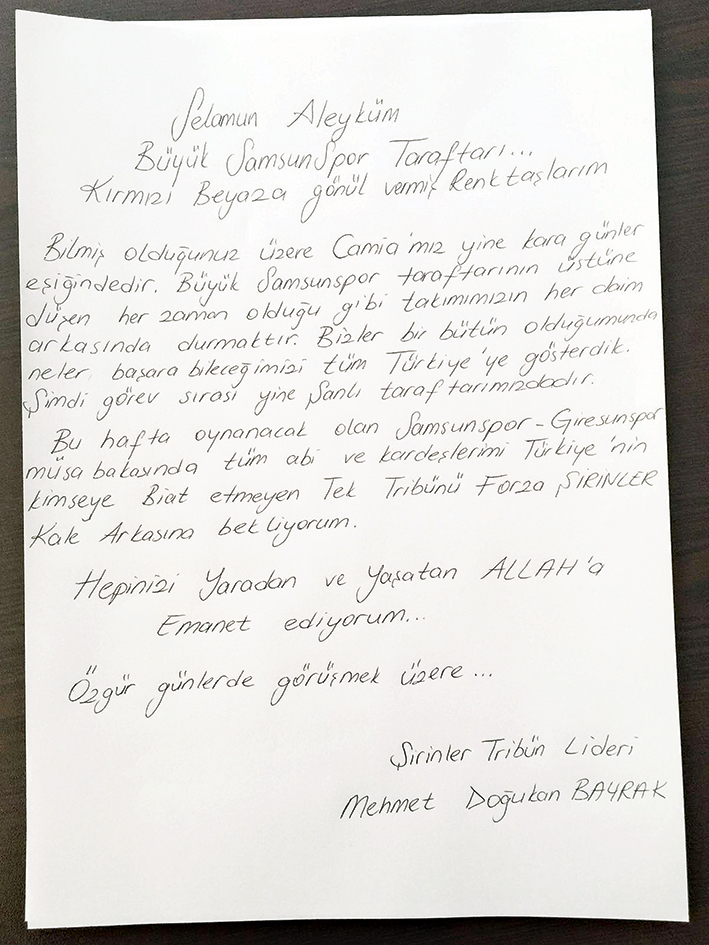 Selamun Aleyküm
Büyük SamsunSpor Taraftarı...
Kırmızı Beyaza gönül vermiş Renktaşlarım
Bilmiş olduğunuz üzere Camia'mız yine kara günler
eşiğindedir. Büyük Samsunspor taraftarının üstüne
düşen her zaman olduğu gibi takımımızın her daim
arkasında durmaktır. Bizler bir bütün olduğumunda
neler başara bileceğimizi tüm Türkiye'ye gösterdik.
Şimdi görev sırası yine Şanlı taraftarımızdadır.
Bu hafta oynanacak olan Samsunspor-Giresunspor
müsabakasında tüm abi ve kardeşlerimi Türkiye'nin
kimseye Biat etmeyen Tek Tribünü Forza ŞİRİNLER
Kale Arkasına bekliyorum.
Hepinizi Yaradan ve Yaşatan ALLAH'a
Emanet ediyorum...
Özgür günlerde görüşmek üzere...
Şirinler Tribün Lideri
Mehmet Doğukan BAYRAK